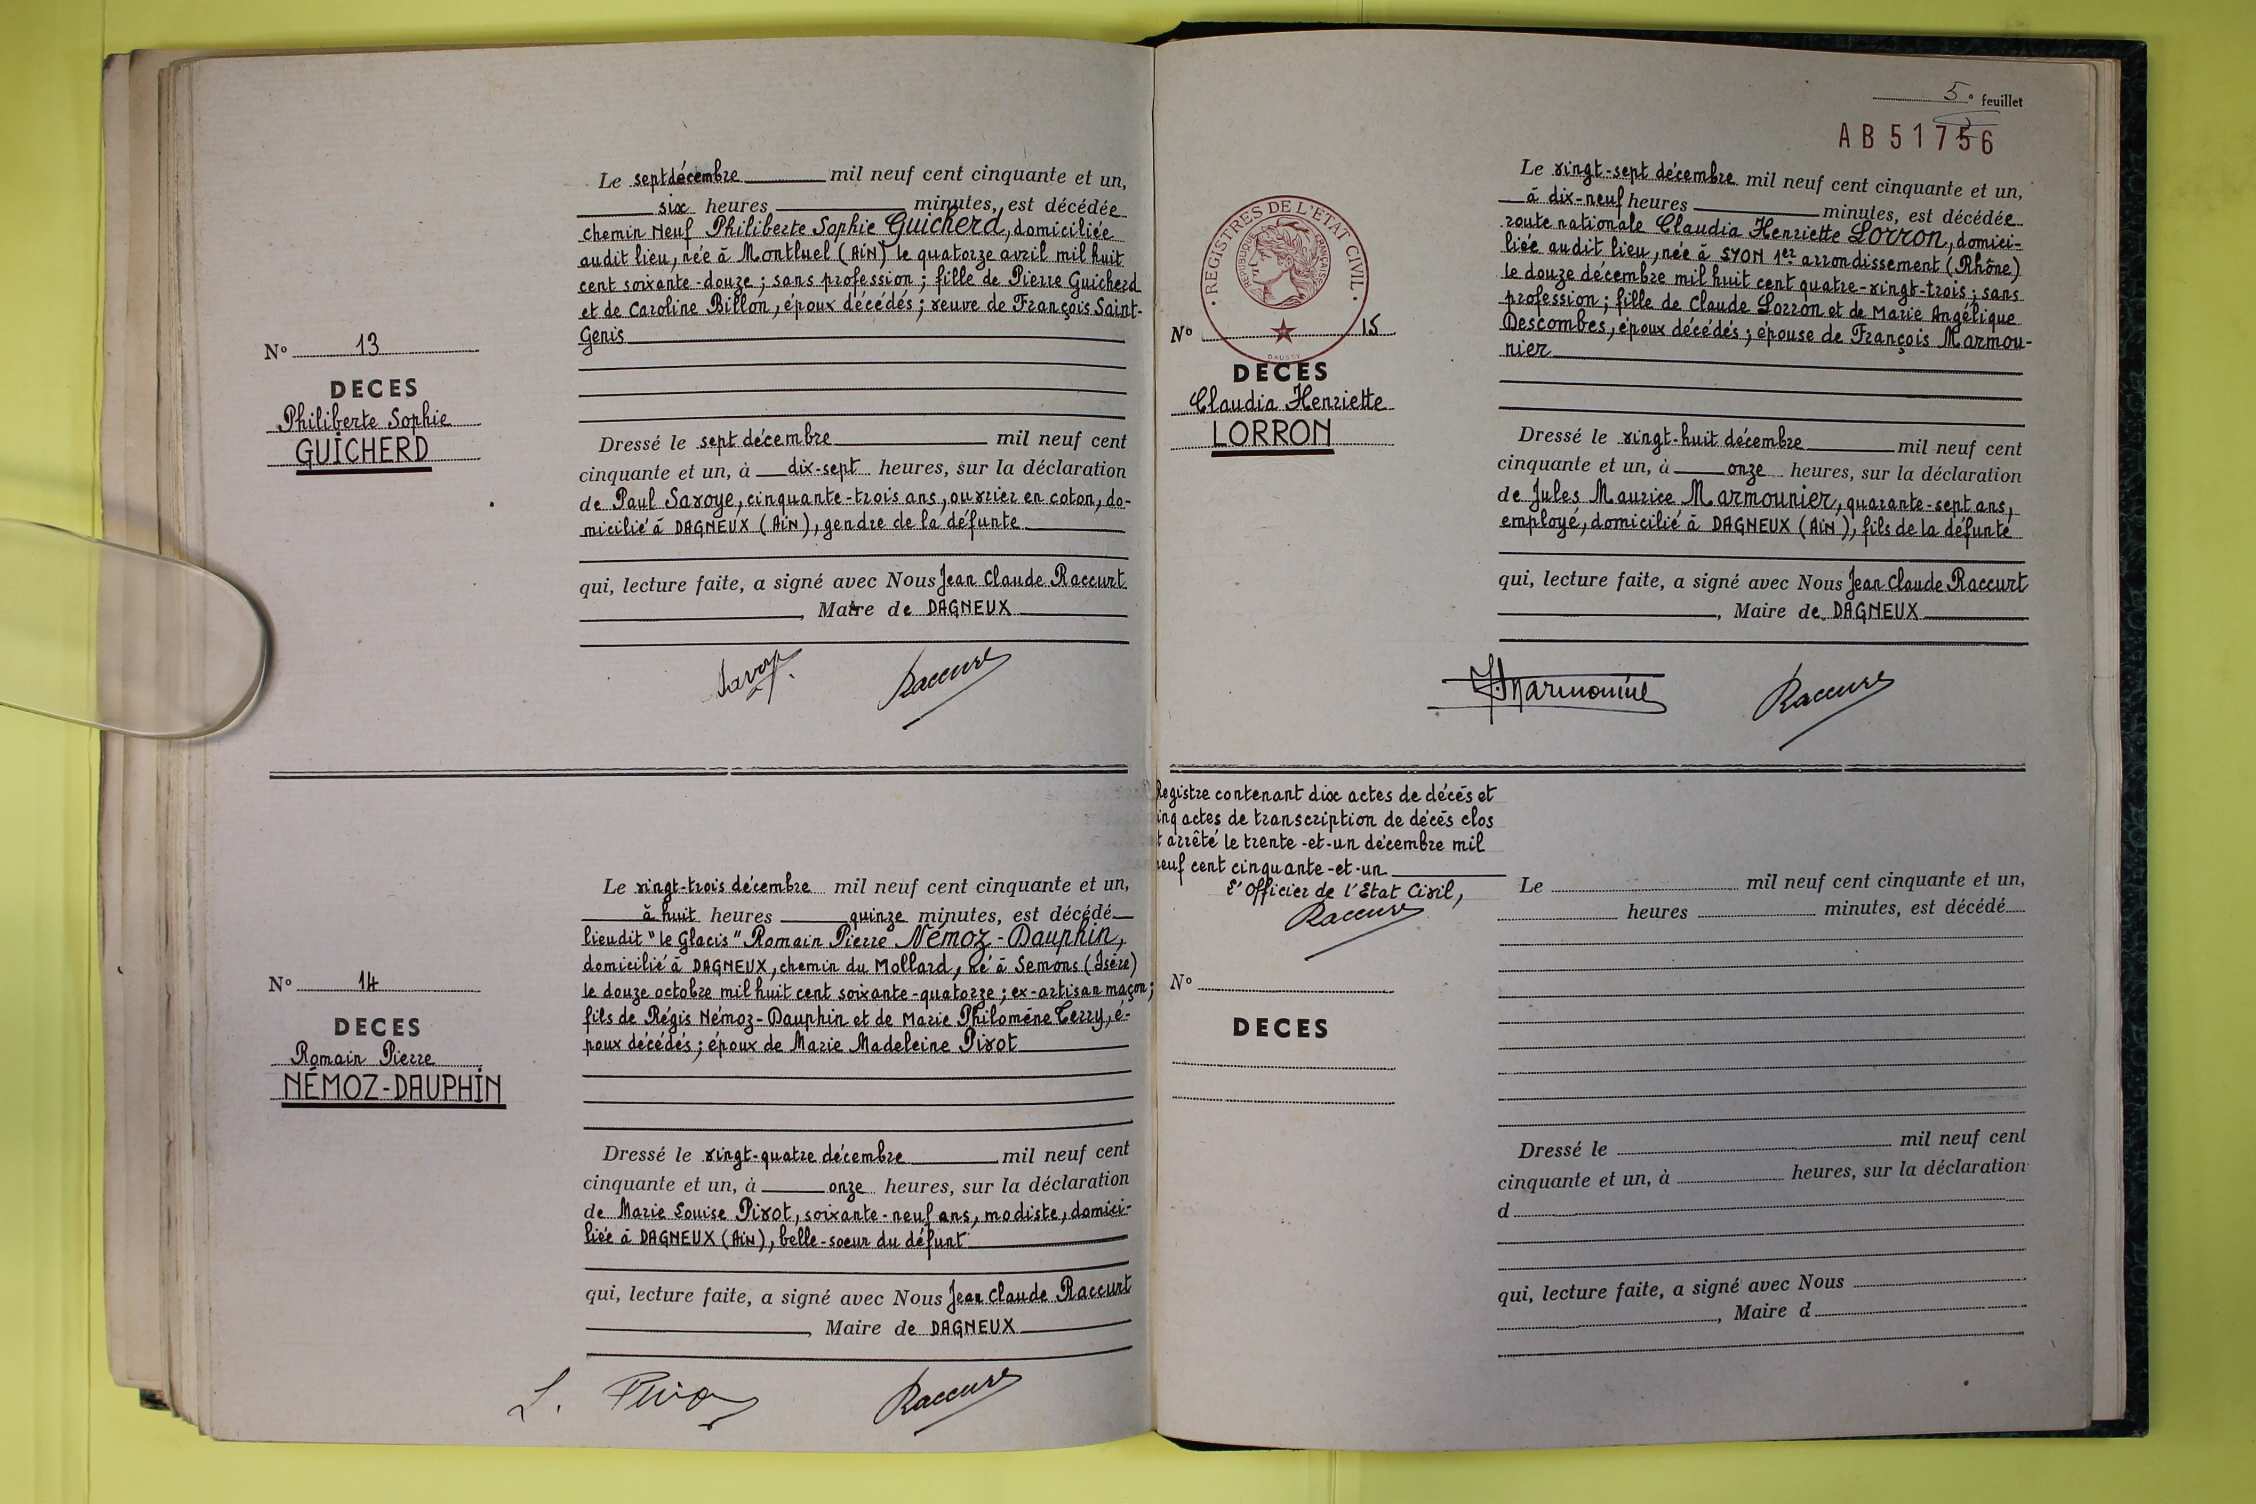 Le sept décembre mil neuf cent cinquante et un,
six heures minutes, est décédée
chemin Neuf Philiberte Sophie Guicherd, domiciliée
audit lieu, née à Montluel (AiN) le quatorze avril mil huit
cent soixante-douze ; sans profession ; fille de Pierre Guicherd
et de Caroline Billon, époux décédés ; veuve de François Saint-
Genis
N° 13
DECES
Philiberte Sophie
GUICHERD
Dressé le sept décembre mil neuf cent
cinquante et un, à dix-sept heures, sur la déclaration
de Paul Savoye, cinquante-trois ans, ouvrier en coton, do-
micilié à DAGNEUX (AiN), gendre de la défunte
qui, lecture faite, a signé avec Nous Jean Claude Raccurt
, Maire de DAGNEUX
Savoye Raccurt
Le vingt-trois décembre mil neuf cent cinquante et un,
à huit heures quinze minutes, est décédé
lieudit "le Glacis" Romain Pierre Némoz-Dauphin,
domicilié à DAGNEUX, chemin du Mollard, né à Semons (Isère)
le douze octobre mil huit cent soixante-quatorze ; ex-artisan maçon ;
fils de Régis Némoz-Dauphin et de Marie Philomène Terry, é-
poux décédés ; époux de Marie Madeleine Pivot
N° 14
DECES
Romain Pierre
NÉMOZ-DAUPHIN
Dressé le vingt-quatre décembre mil neuf cent
cinquante et un, à onze heures, sur la déclaration
de Marie Louise Pivot, soixante-neuf ans, modiste, domici-
liée à DAGNEUX (AiN), belle-soeur du défunt
qui, lecture faite, a signé avec Nous Jean Claude Raccurt
, Maire de DAGNEUX
L. Pivot Raccurt
5e feuillet
AB51756
REGISTRES DE L'ETAT CIVIL
REPUBLIQUE FRANÇAISE
DAUSSY
Le vingt-sept décembre mil neuf cent cinquante et un,
à dix-neuf heures minutes, est décédée
route nationale Claudia Henriette Lorron, domici-
liée audit lieu, née à LYON 1er arrondissement (Rhône)
le douze décembre mil huit cent quatre-vingt-trois ; sans
profession ; fille de Claude Lorron et de Marie Angélique
Descombes, époux décédés ; épouse de François Marmou-
nier
N° 15
DECES
Claudia Henriette
LORRON
Dressé le vingt-huit décembre mil neuf cent
cinquante et un, à onze heures, sur la déclaration
de Jules Maurice Marmounier, quarante-sept ans,
employé, domicilié à DAGNEUX (AiN), fils de la défunte
qui, lecture faite, a signé avec Nous Jean Claude Raccurt
, Maire de DAGNEUX
J. Marmounier Raccurt
Registre contenant dix actes de décès et
inq actes de transcription de décès clos
t arrêté le trente-et-un décembre mil
neuf cent cinquante-et-un
L'Officier de l'Etat Civil,
Raccurt
Le mil neuf cent cinquante et un,
heures minutes, est décédé
N°
DECES
Dressé le mil neuf cent
cinquante et un, à heures, sur la déclaration
d
qui, lecture faite, a signé avec Nous
, Maire d